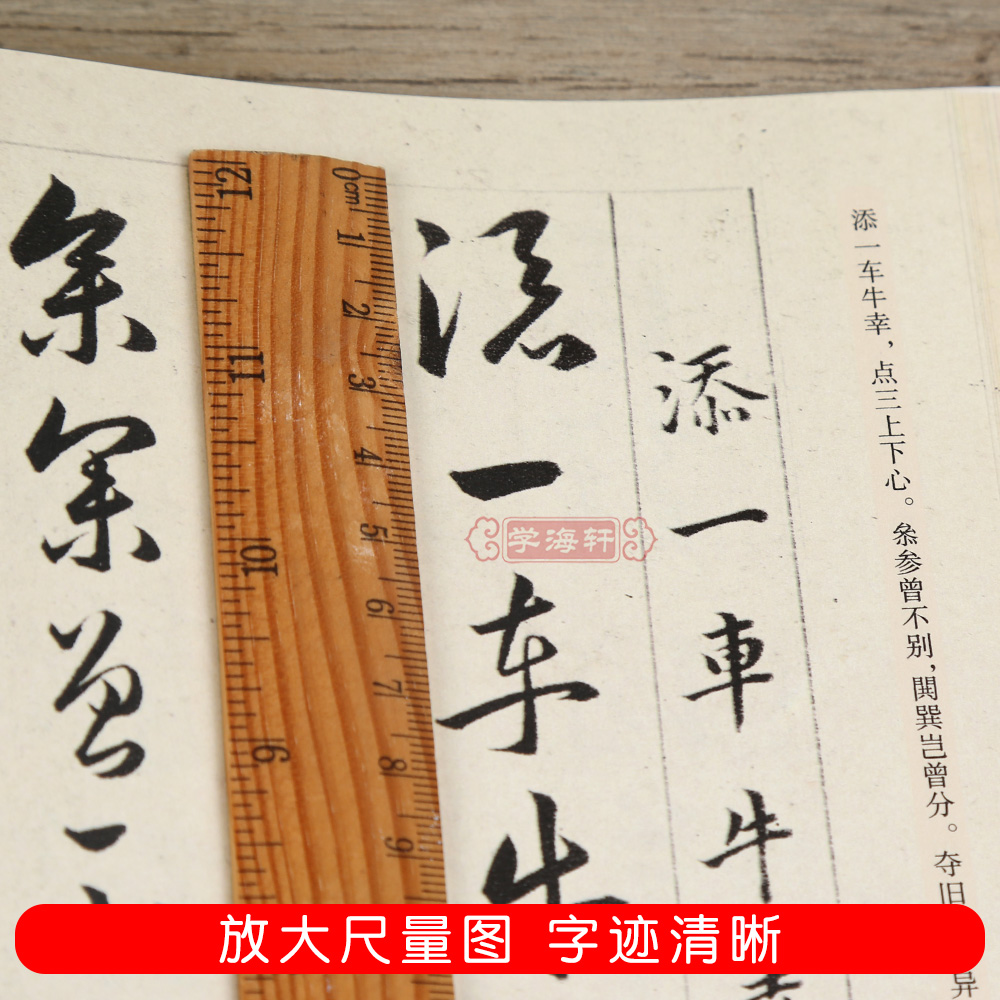 添一车牛幸，点三上下心。叅参曾不别，閧巽岂曾分。夺旧
异
添一車牛
添一车牛
叅参曾
0cm 1 2 3 4 5 6 7 8 9
12 11 10 9
学海轩
放大尺量图 字迹清晰